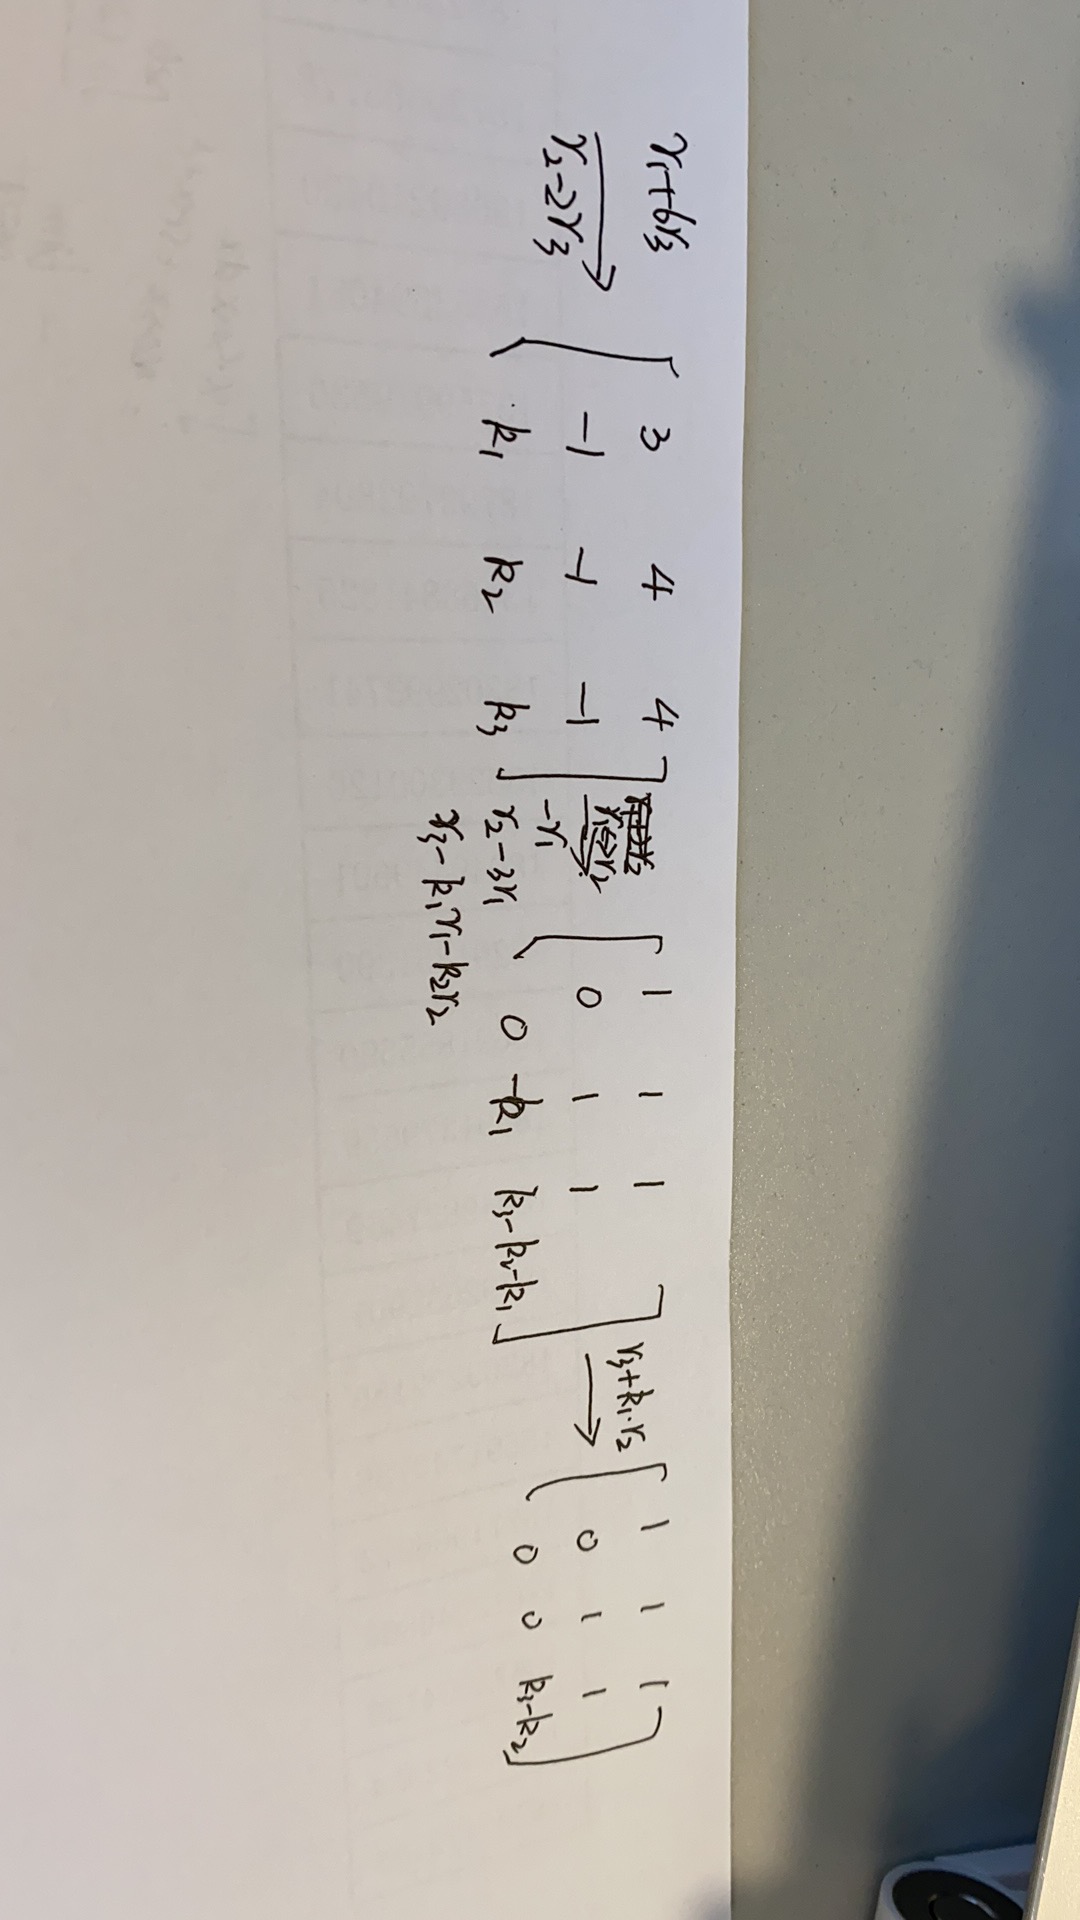 r₁+6r₃
r₂-2r₃
3 4 4
-1 -1 -1
k₁ k₂ k₃
r₁↔r₂
-r₁
r₂-3r₁
r₃-k₁r₁-k₂r₂
1 1 1
0 1 1
0 -k₁ k₃-k₂-k₁
r₃+k₁·r₂
1 1 1
0 1 1
0 0 k₃-k₂